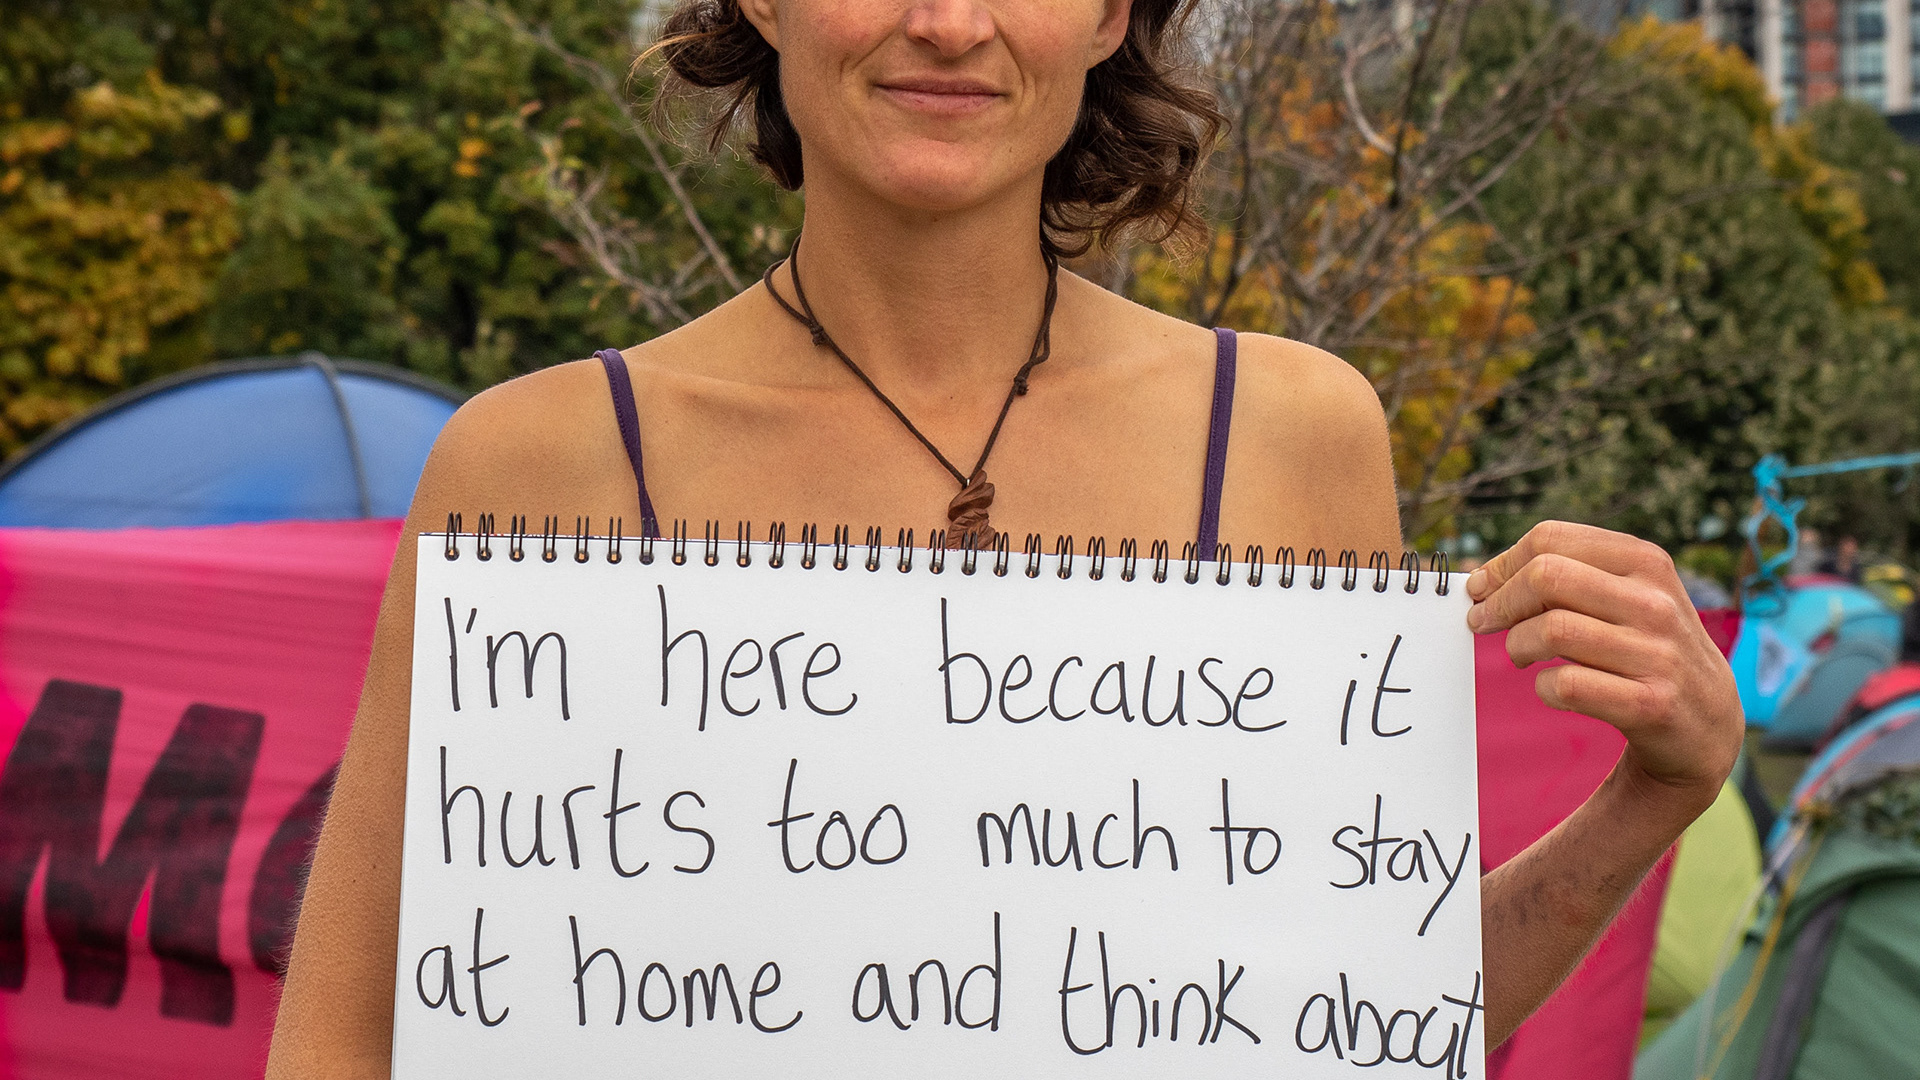 I'm here because it
hurts too much to stay
at home and think about